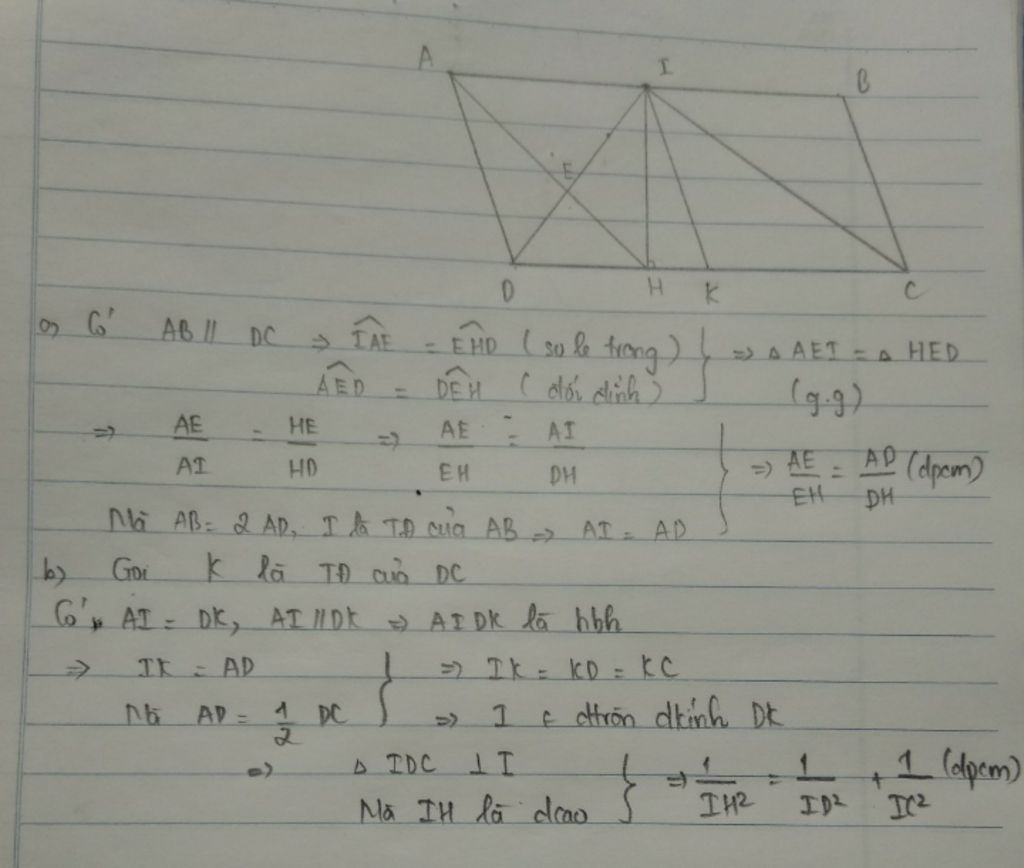 A I B
E
D H K C
a) Có AB // DC ⇒ \widehat{IAE} = \widehat{EHD} (so le trong) } ⇒ △ AEI = △ HED
\widehat{AED} = \widehat{DEH} (đối đỉnh) (g.g)
⇒ AE/AI = HE/HD ⇒ AE/EH = AI/DH } ⇒ AE/EH = AD/DH (dpcm)
Mà AB = 2 AD, I là TĐ của AB ⇒ AI = AD
b) Gọi K là TĐ của DC
Có AI = DK, AI // DK ⇒ AIDK là hbh
⇒ IK = AD } ⇒ IK = KD = KC
Mà AD = 1/2 DC ⇒ I ∈ đtròn đkính DK
⇒ △ IDC ⊥ I } ⇒ 1/IH² = 1/ID² + 1/IC² (dpcm)
Mà IH là đcao